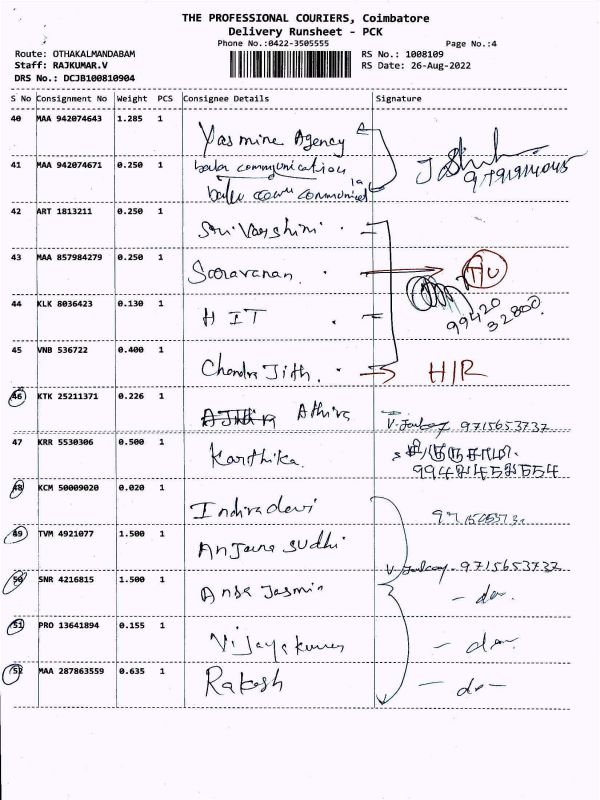 THE PROFESSIONAL COURIERS, Coimbatore
Delivery Runsheet - PCK
Phone No.:0422-3505555
Page No.:4
Route: OTHAKALMANDABAM
RS No.: 1008109
Staff: RAJKUMAR.V
RS Date: 26-Aug-2022
DRS No.: DCJB100810904
S No Consignment No Weight PCS Consignee Details Signature
40 MAA 942074643 1.285 1 Yasmine Agency
41 MAA 942074671 0.250 1 bala communication
42 ART 1813211 0.250 1 Sri Varshini
43 MAA 857984279 0.250 1 Saravanan
44 KLK 8036423 0.130 1 HIT 99420
32800
45 VNB 536722 0.400 1 Chandra Jith H/R
46 KTK 25211371 0.226 1 Athira 9715653737
47 KRR 5530306 0.500 1 Karthika
48 KCM 50009020 0.020 1 Indiradevi
49 TVM 4921077 1.500 1 Anjana Sudhi 9715653737
50 SNR 4216815 1.500 1 Ansa Jasmin - do.
51 PRO 13641894 0.155 1 Vijayakumar - do.
52 MAA 287863559 0.635 1 Rakesh - do -